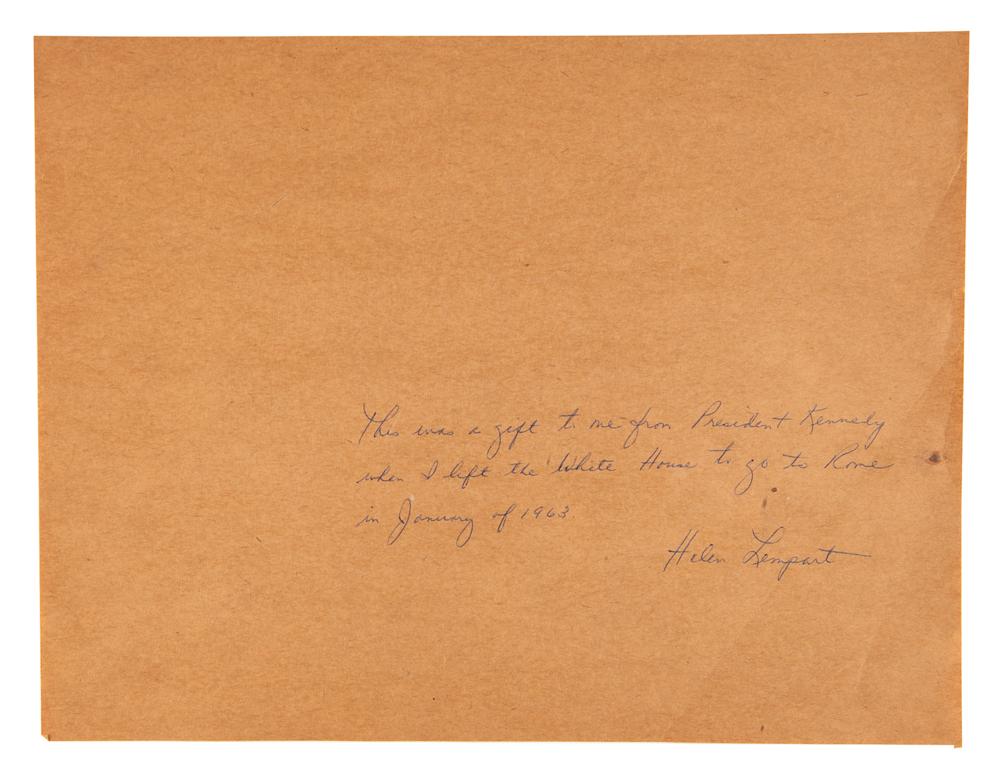 This was a gift to me from President Kennedy
when I left the White House to go to Rome
in January of 1963.
Helen Lempart